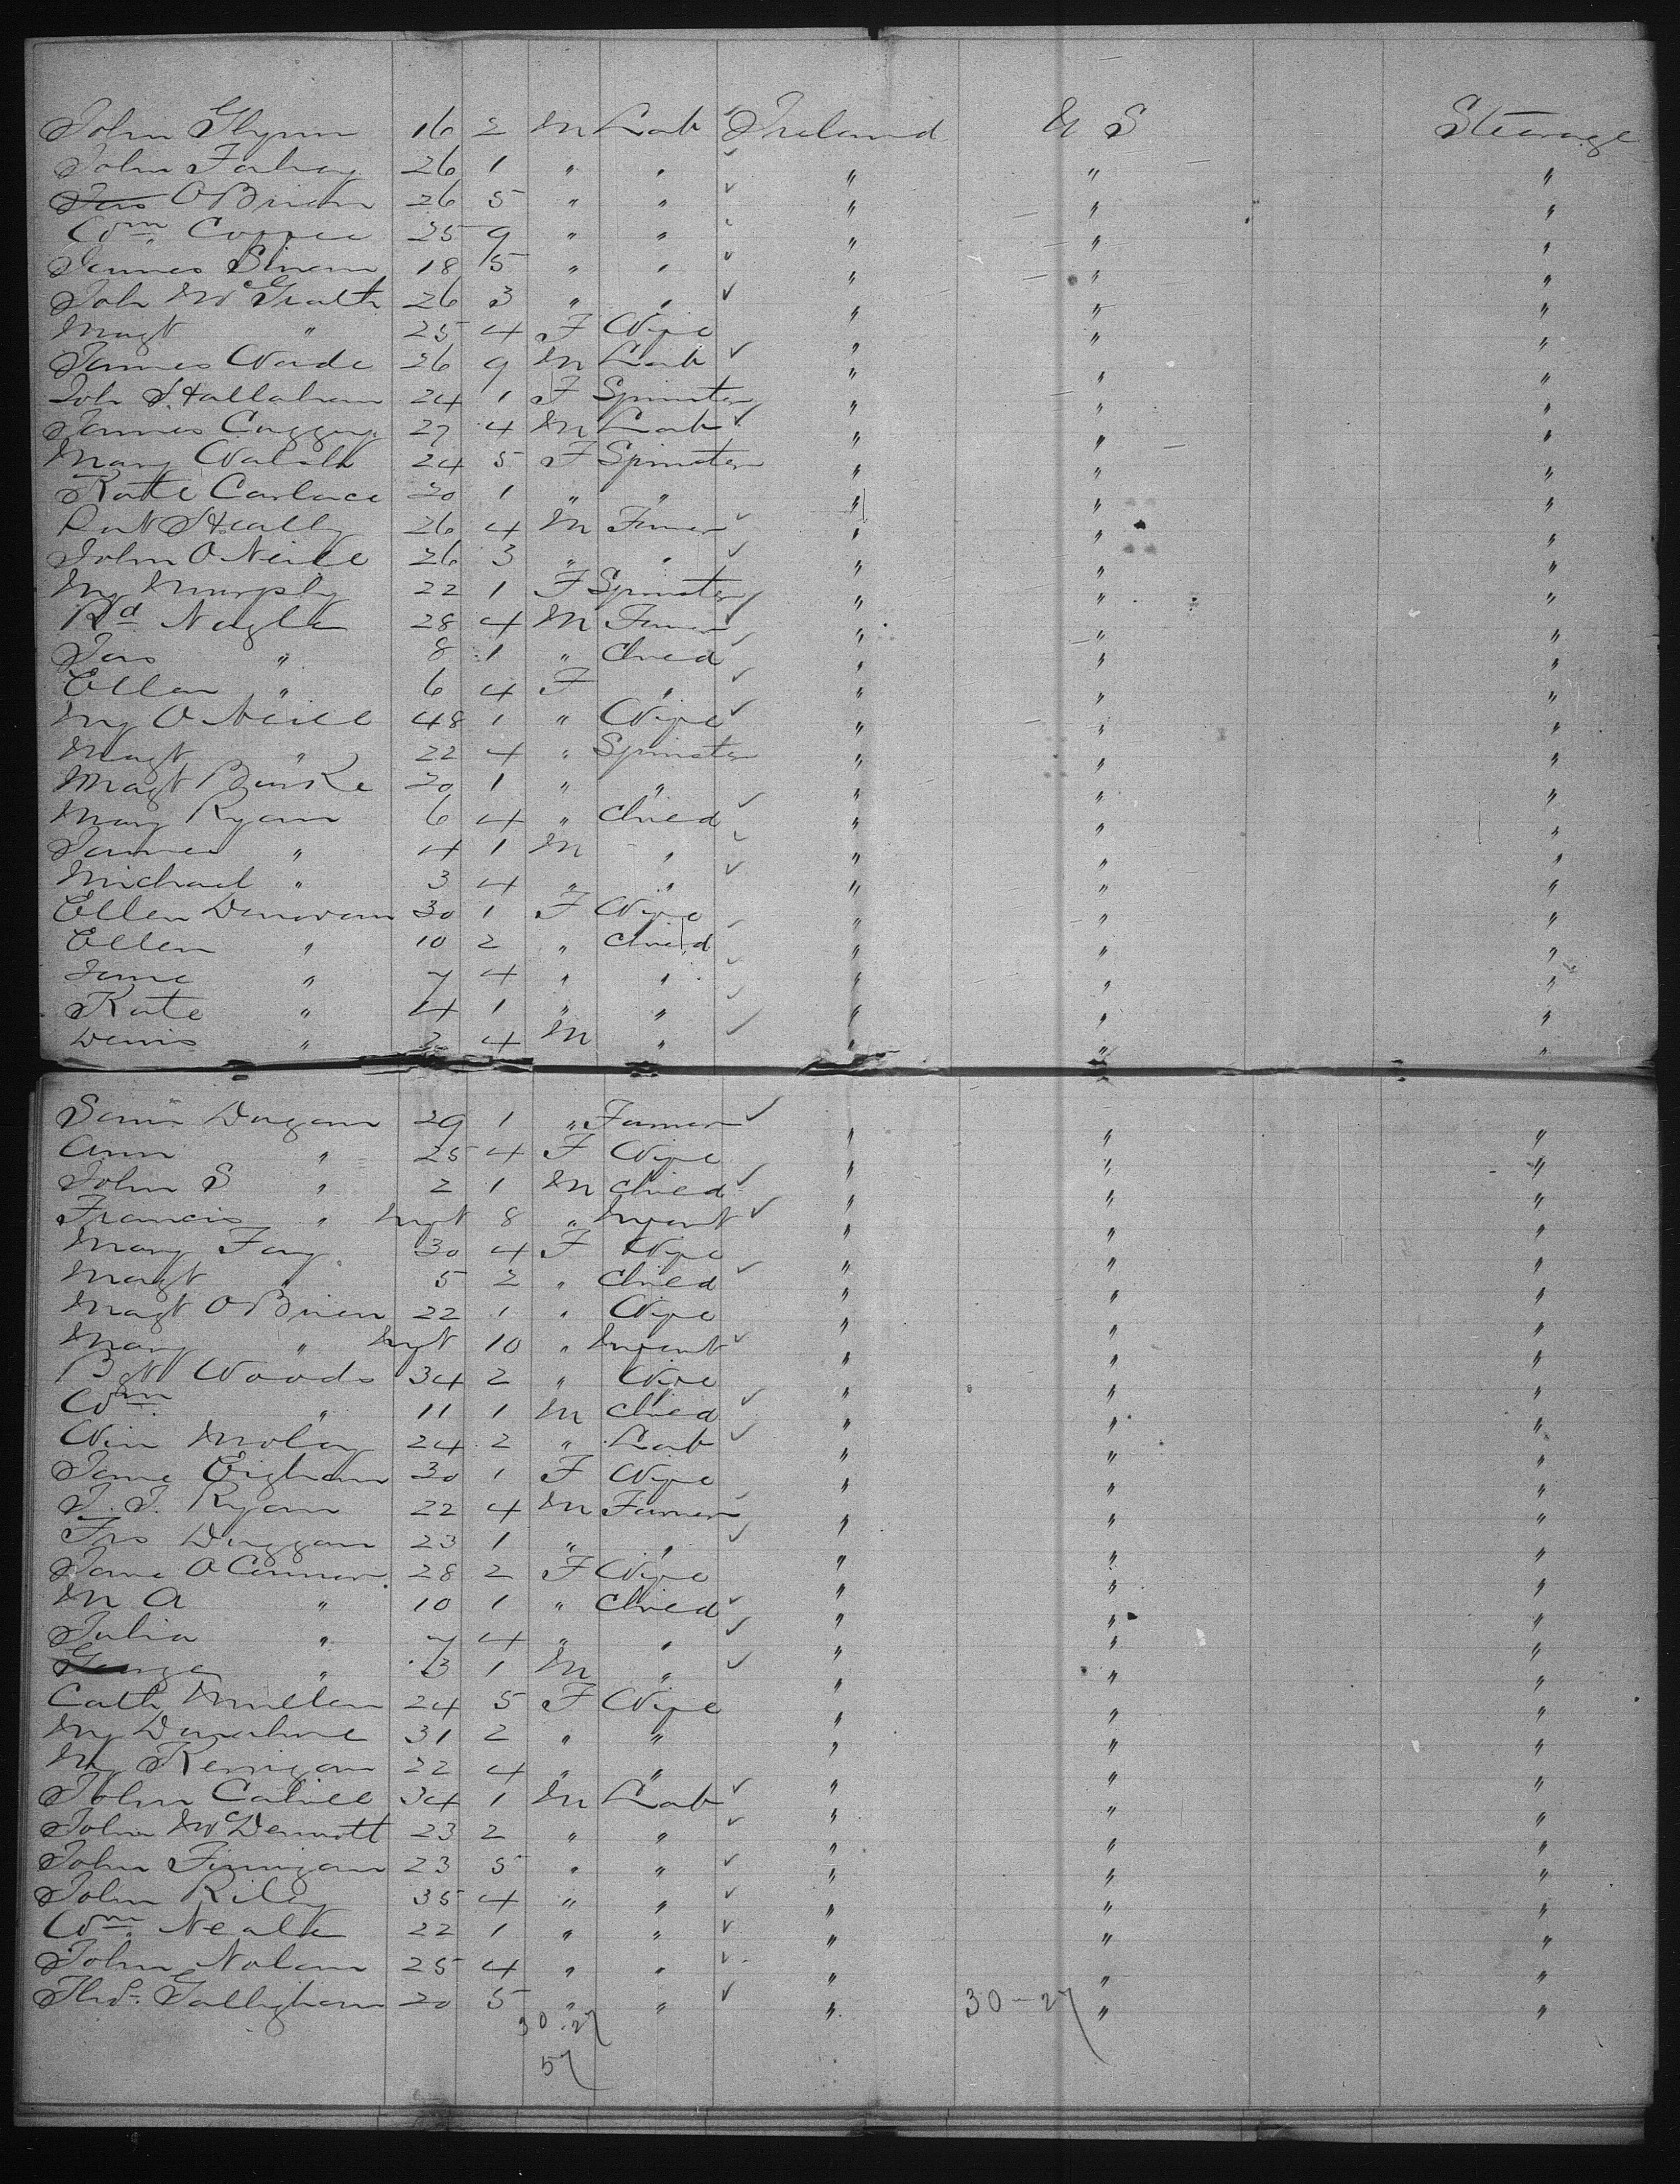 John Glynn 16 2 M Lab Ireland U S Steerage
John Fahey 26 1 " " " " "
Jas O'Brien 26 5 " " " " "
Wm 25 9 " " " " "
James 18 5 " " " " "
Joh McGrath 26 3 " " " " "
Magt " 25 4 F Wife " " "
James Wade 26 9 M Lab " " "
Joh Hallahan 24 1 F Spinster " " "
James 27 4 M Lab " " "
Mary Walsh 24 5 F Spinster " " "
Kate 20 1 " " " " "
26 4 M Farmer " " "
John O'Neill 26 3 " " " " "
My Murphy 22 1 F Spinster " " "
Rd Nagle 28 4 M Farmer " " "
Jas " 8 1 " Child " " "
Ellen " 6 4 F " " " "
My O'Neill 48 1 " Wife " " "
Magt " 22 4 " Spinster " " "
Magt Burke 20 1 " " " " "
Mary Ryan 6 4 " Child " " "
James " 4 1 M " " " "
Michael " 3 4 " " " " "
Ellen Donovan 30 1 F Wife " " "
Ellen " 10 2 " Child " " "
Jane " 7 4 " " " " "
Kate " 4 1 " " " " "
Denis " 2 4 M " " " "
Saml Dugan 29 1 " Farmer " " "
Ann " 25 4 F Wife " " "
John S " 2 1 M Child " " "
Francis " Inft 8 " Infant " " "
Mary Fay 30 4 F Wife " " "
Magt " 5 2 " Child " " "
Magt O'Brien 22 1 " Wife " " "
Mary " Inft 10 " Infant " " "
Bgt Woods 34 2 " Wife " " "
Wm " 11 1 M Child " " "
Moloy 24 2 " Lab " " "
Jane 30 1 F Wife " " "
Ryan 22 4 M Farmer " " "
Duggan 23 1 " " " " "
Jane O'Connor 28 2 F Wife " " "
M A " 10 1 " Child " " "
Julia " 7 4 " " " " "
George " 3 1 M " " " "
Cath Mullen 24 5 F Wife " " "
My Donahue 31 2 " " " " "
My Kerrigan 22 4 " " " " "
John Cahill 34 1 M Lab " " "
John McDermott 23 2 " " " " "
John Finnigan 23 5 " " " " "
John Riley 35 4 " " " " "
Wm 22 1 " " " " "
John Nolan 25 4 " " " " "
Thos. Gallighan 20 5 " " " 30-27 " "
30-27
57